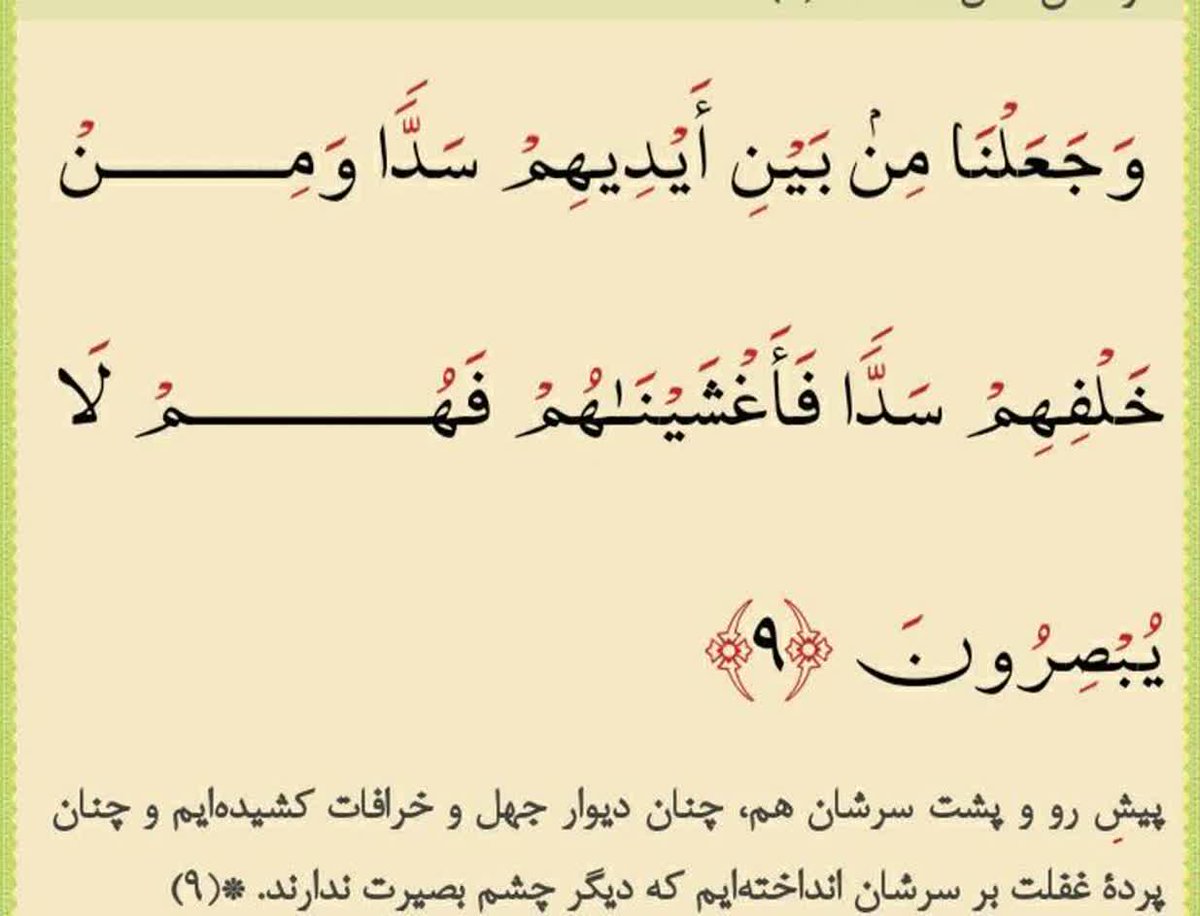 وَجَعَلْنَا مِنۢ بَيْنِ أَيْدِيهِمْ سَدًّا وَمِـــــنْ
خَلْفِهِمْ سَدًّا فَأَغْشَيْنَـٰهُمْ فَهُـــــمْ لَا
يُبْصِرُونَ ﴿٩﴾
پیشِ رو و پشت سرشان هم، چنان دیوار جهل و خرافات کشیده‌ایم و چنان
پردهٔ غفلت بر سرشان انداخته‌ایم که دیگر چشم بصیرت ندارند. *(۹)